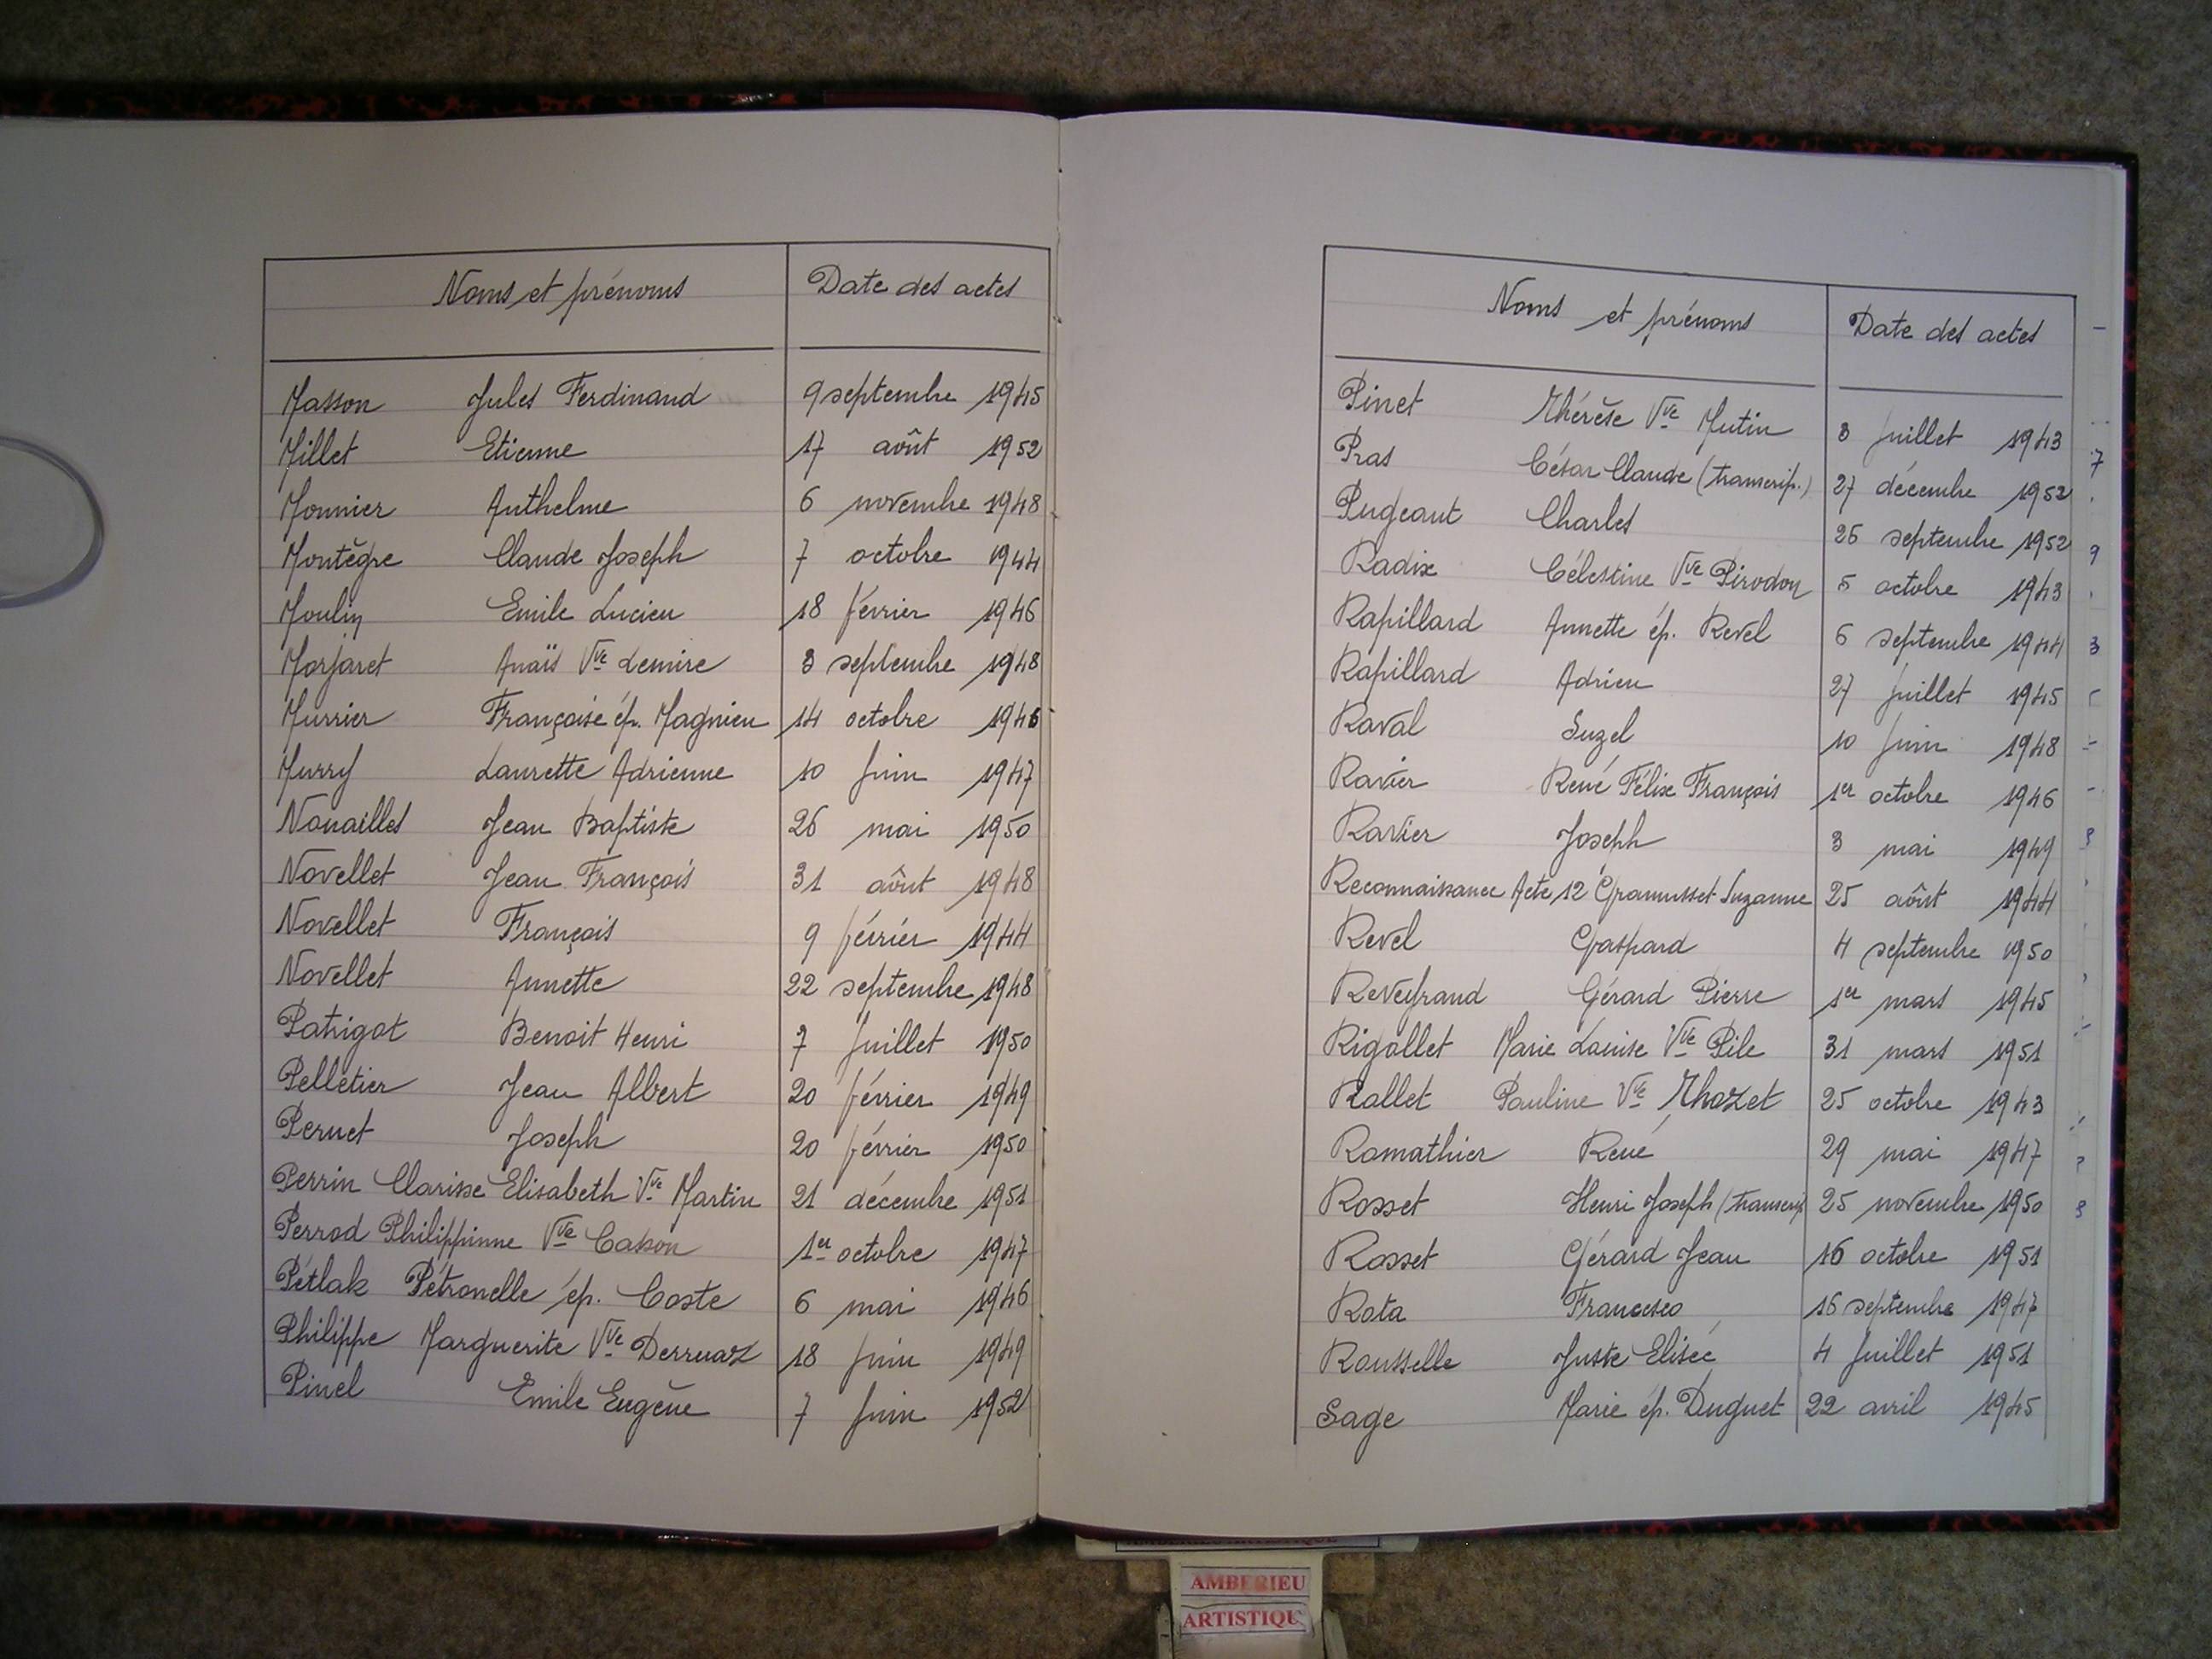 Noms et prénoms Date des actes
Masson Jules Ferdinand 9 septembre 1945
Millet Etienne 17 août 1952
Monnier Anthelme 6 novembre 1948
Montègre Claude Joseph 7 octobre 1944
Moulin Emile Lucien 18 février 1946
Morjaret Anaïs Vve Lemire 3 septembre 1948
Murrier Françoise ép. Magnien 14 octobre 1946
Murry Laurette Adrienne 10 juin 1947
Nouailles Jean Baptiste 26 mai 1950
Novellet Jean François 31 août 1948
Novellet François 9 février 1944
Novellet Annette 22 septembre 1948
Patrigot Benoit Henri 7 juillet 1950
Pelletier Jean Albert 20 février 1949
Pernet Joseph 20 février 1950
Perrin Clarisse Elisabeth Vve Martin 21 décembre 1951
Perrod Philippinne Vve Casson 1er octobre 1947
Pétlak Pétronelle ép. Coste 6 mai 1946
Philippe Marguerite Vve Derruaz 18 juin 1949
Pinel Emile Eugène 7 juin 1952
Noms et prénoms Date des actes
Pinet Thérèse Vve Mutin 3 juillet 1943
Pras César Claude (transcrip.) 27 décembre 1952
Pugeaut Charles 26 septembre 1952
Radix Célestine Vve Pirodon 5 octobre 1943
Rapillard Annette ép. Revel 6 septembre 1944
Rapillard Adrien 27 juillet 1945
Raval Suzel 10 juin 1948
Ravier René Félix François 1er octobre 1946
Ravier Joseph 3 mai 1949
Reconnaissance Acte 12 Gramusset Suzanne 25 août 1944
Revel Gaspard 4 septembre 1950
Reveyrand Gérard Pierre 1er mars 1945
Rigollet Marie Louise Vve Pile 31 mars 1951
Rollet Pauline Vve Thozet 25 octobre 1943
Romathier René 29 mai 1947
Rosset Henri Joseph (transcrip 25 novembre 1950
Rosset Gérard Jean 16 octobre 1951
Rota Francesco 16 septembre 1947
Rousselle Juste Elisée 4 juillet 1951
Sage Marie ép. Duguet 22 avril 1945
AMBERIEU
ARTISTIQU